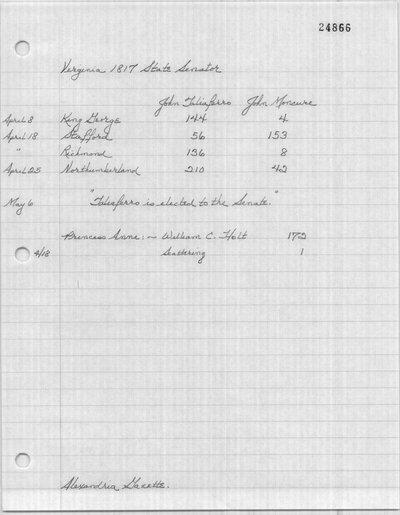 24866
Verginia 1817 State Senator
John Taliaferro John Moncure
April 8 King George 144 4
April 18 Stafford 56 153
" Richmond 136 8
April 25 Northumberland 210 42
May 6 "Taliaferro is elected to the Senate."
Princess Anne:~ William C. Holt 172
4/18 Scattering 1
Alexandria Gazette.